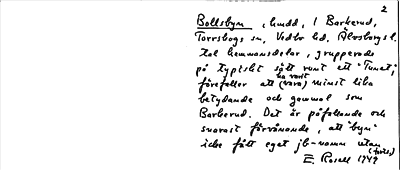 2
Bollsbyn, hmdd, i Barkerud,
Torrskogs sn, Vedbo hd, Älvsborgs l.
tal hemmansdelar, grupperade
på typiskt sätt runt ett "Tunet",
förefaller att ha varit (vara) minst lika
betydande och gammal som
Barkerud. Det är påfallande och
snarast förvånande, att "byn"
icke fått eget jb-namn utan
(forts.)
E. Rosell 1949